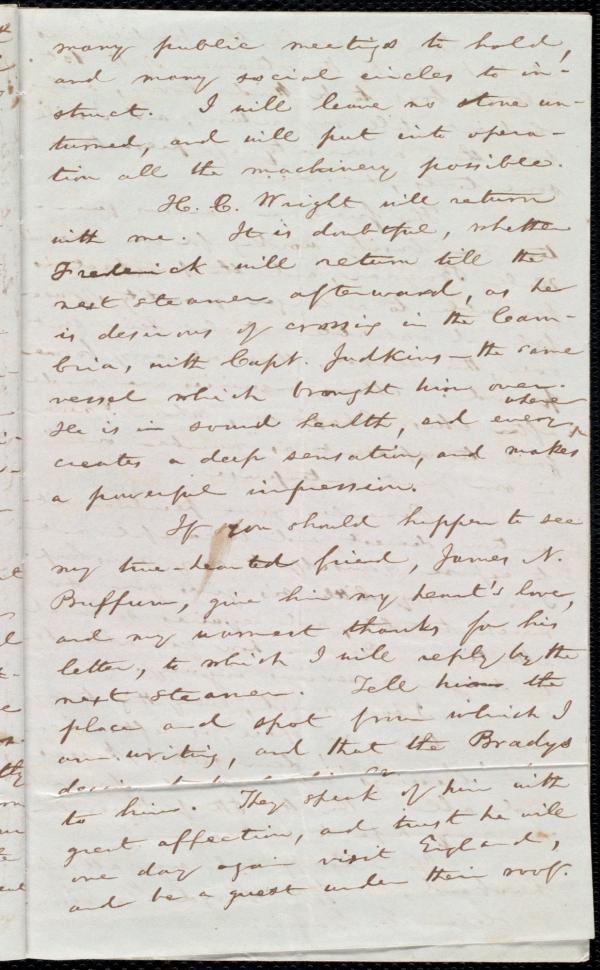 many public meetings to hold,
and many social circles to in-
struct. I will leave no stone un-
turned, and will put into opera-
tion all the machinery possible.
H. C. Wright will return
with me. It is doubtful, whether
Frederick will return till the
next steamer afterward, as he
is desirous of crossing in the Cam-
bria, with Capt. Judkins — the same
vessel which brought him over.
He is in sound health, and every
where
creates a deep sensation, and makes
a powerful impression.
If you should happen to see
my true-hearted friend, James N.
Buffum, give him my heart's love,
and my warmest thanks for his
letter, to which I will reply by the
next steamer. Tell him the
place and spot from which I
am writing, and that the Bradys
to him. They speak of him with
great affection, and trust he will
one day again visit England,
and be a guest under their roof.